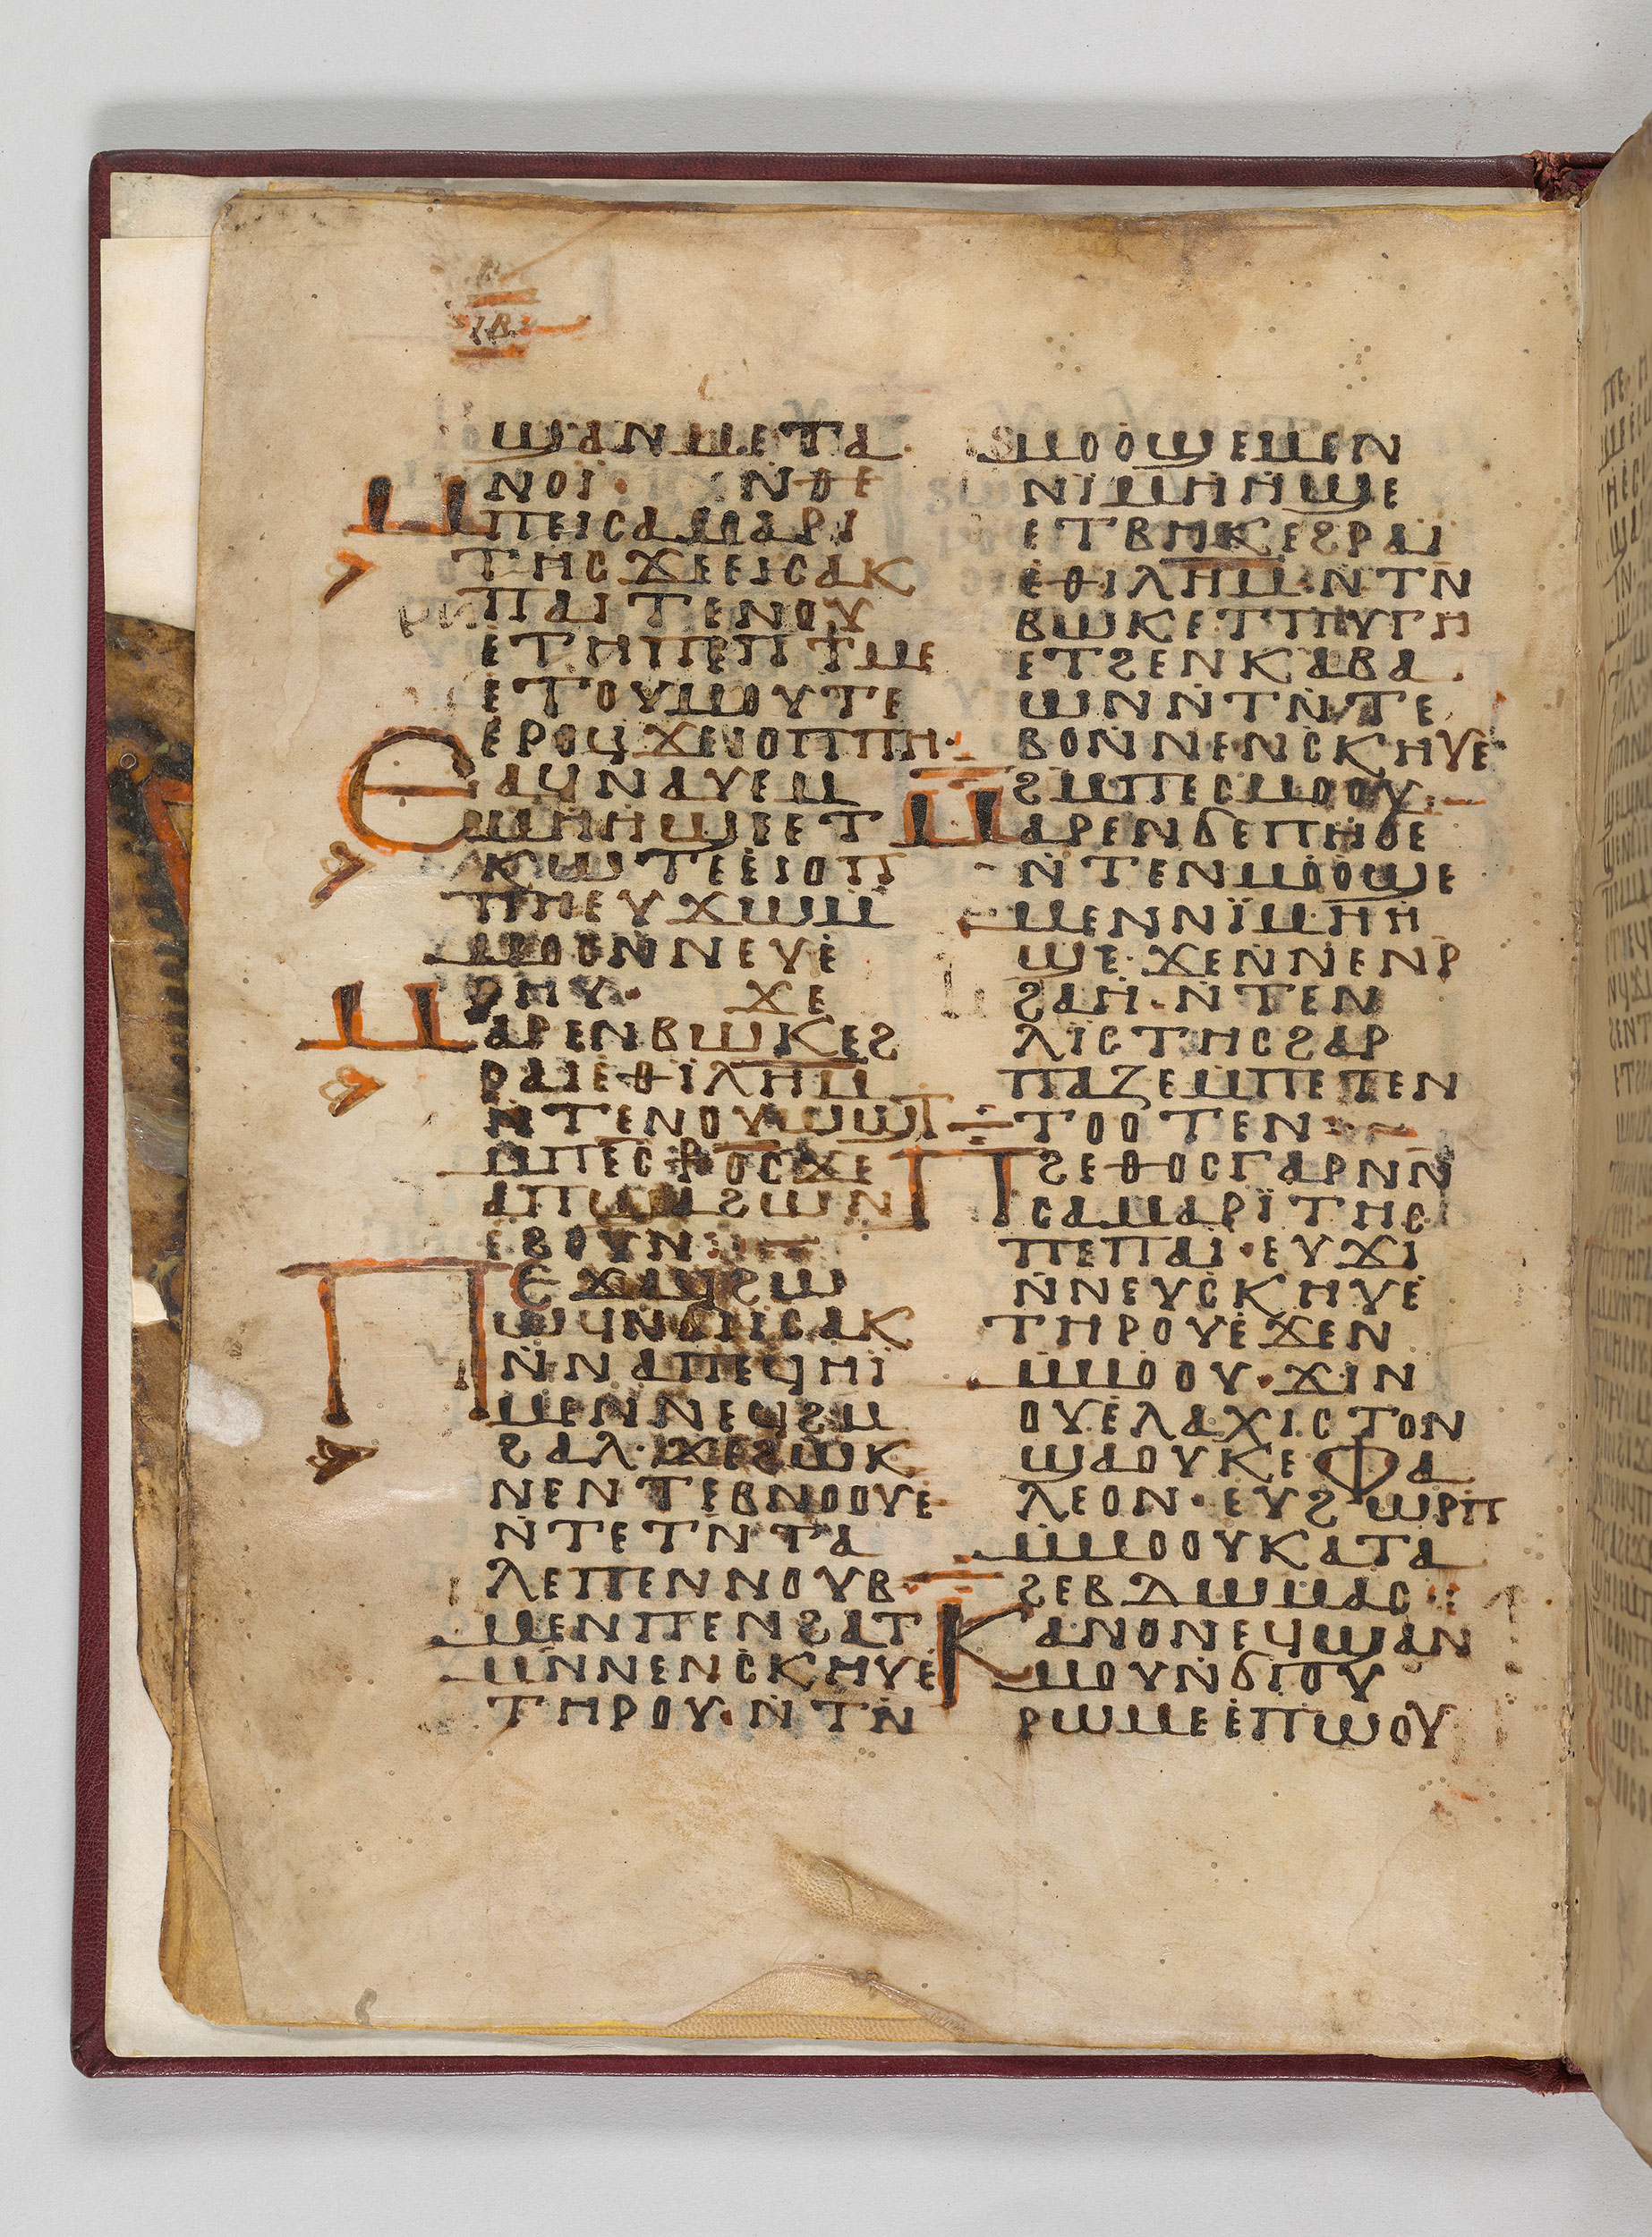 ϣⲁⲛⲙⲉⲧⲁ
ⲛⲟⲓ̈· ⲛ̇ⲑⲉ
ⲙⲡⲉⲓⲥⲁⲙⲁⲣⲓ
ⲧⲏⲥ ϫⲉⲉⲓⲥⲁⲕ
ⲡⲁⲓ ⲧⲉⲛⲟⲩ
ⲉⲧⲏⲡⲉⲡϯⲙⲉ
ⲉⲧⲟⲩⲙⲟⲩⲧⲉ
ⲉⲣⲟϥ ϫⲉⲓⲟⲡⲡⲏ·
ⲉⲁϥⲛⲁⲩⲉⲙ
ⲙⲏⲏϣⲉⲉⲧ
ⲕⲱⲧⲉⲉ̇ⲓⲟⲡ
ⲡⲏⲉⲩϫⲱⲙ̇
ⲙⲟⲥⲛⲛⲉⲩⲉ̇
ⲣⲏⲩ· ϫⲉ
ⲙⲁⲣⲉⲛⲃⲱⲕⲉϩ
ⲣⲁⲓⲉ̇ⲑⲓ̈ⲗⲏⲙ
ⲛ̇ⲧⲉⲛⲟⲩⲱϣⲧ
ⲙ̇ⲡⲉⲥⲣⲟⲥϫⲉ
ⲁⲡϣⲁϩⲱⲛ
ⲉϩⲟⲩⲛ
ⲡⲉϫⲁϥϩⲱ
ⲱϥⲛ̇ϭⲓⲓⲥⲁⲕ
ⲛ̇ⲛⲁⲡⲉϥⲏⲓ̈
ⲙⲉⲛⲛⲉϥϩⲙ
ϩⲁⲗ· ϫⲉϩⲱⲕ
ⲛⲉⲛⲧⲉⲃⲛⲟⲟⲩⲉ
ⲛ̇ⲧⲉⲧⲛ̇ⲧⲁ
ⲗⲉⲡⲉⲛⲛⲟⲩⲃ
ⲙⲉⲛⲡⲉⲛϩⲁⲧ
ⲙⲛ̇ⲛⲉⲛⲥⲕⲏⲩⲉ̇
ⲧⲏⲣⲟⲩ·ⲛ̇ⲧⲛ̇
ⲙⲟⲟϣⲉⲙⲉⲛ
ⲛⲓ̈ⲙⲏⲏϣⲉ
ⲉⲧⲃⲏⲕⲉϩⲣⲁⲓ
ⲉ̇ⲑⲓⲗⲏⲙ·ⲛⲧⲛ
ⲃⲱⲕⲉⲧⲡⲩⲅⲏ
ⲉⲧϩⲉⲛⲕⲁⲃⲁ
ⲱⲛⲛ̇ⲧⲛ̇ⲧⲉ
ⲃⲟⲛ̇ⲛⲉⲛⲥⲕⲏⲩⲉ
ϩⲙⲡⲉⲥⲙⲟⲟⲩ
ⲙⲁⲣⲉⲛϭⲉⲡⲏϭⲉ
ⲛ̇ⲧⲉⲛⲙⲟⲟϣⲉ
ⲙⲉⲛⲛⲓ̈ⲙⲏⲏ
ϣⲉ· ϫⲉⲛ̇ⲛⲉⲛⲣ
ϩⲁⲏ·ⲛ̇ⲧⲉⲛ
ⲗⲓⲥⲧⲏⲥϩⲁⲣ
ⲡⲁⲍⲉⲙ̇ⲡⲉⲧⲉⲛ
ⲧⲟⲟⲧⲉⲛ·
ⲡϩⲉⲑⲟⲥⲅⲁⲣⲛ̇ⲛ̇
ⲥⲁⲙⲁⲣⲓ̈ⲧⲏⲥ
ⲡⲉⲡⲁⲓ·ⲉⲩϫⲓ
ⲛ̇ⲛⲉⲩⲥⲕⲏⲩⲉ̇
ⲧⲏⲣⲟⲩⲉ̇ϫⲉⲛ
ⲙ̇ⲙⲟⲟⲩ·ϫⲓⲛ
ⲟⲩⲉ̇ⲗⲁⲭⲓⲥⲧⲟⲛ
ϣⲁⲟⲩⲕⲉⲫⲁ
ⲗⲉⲟⲛ·ⲉⲩϩⲱⲣⲡ
ⲙ̇ⲙⲟⲟⲩⲕⲁⲧⲁ
ϩⲉⲃⲇⲱⲙⲁⲥ
ⲕⲁⲛⲟⲛⲉϥϣⲁⲛ
ⲙⲟⲩⲛ̇ϭⲓⲟⲩ
ⲣⲱⲙⲉⲉ̇ⲡⲱⲟⲩ